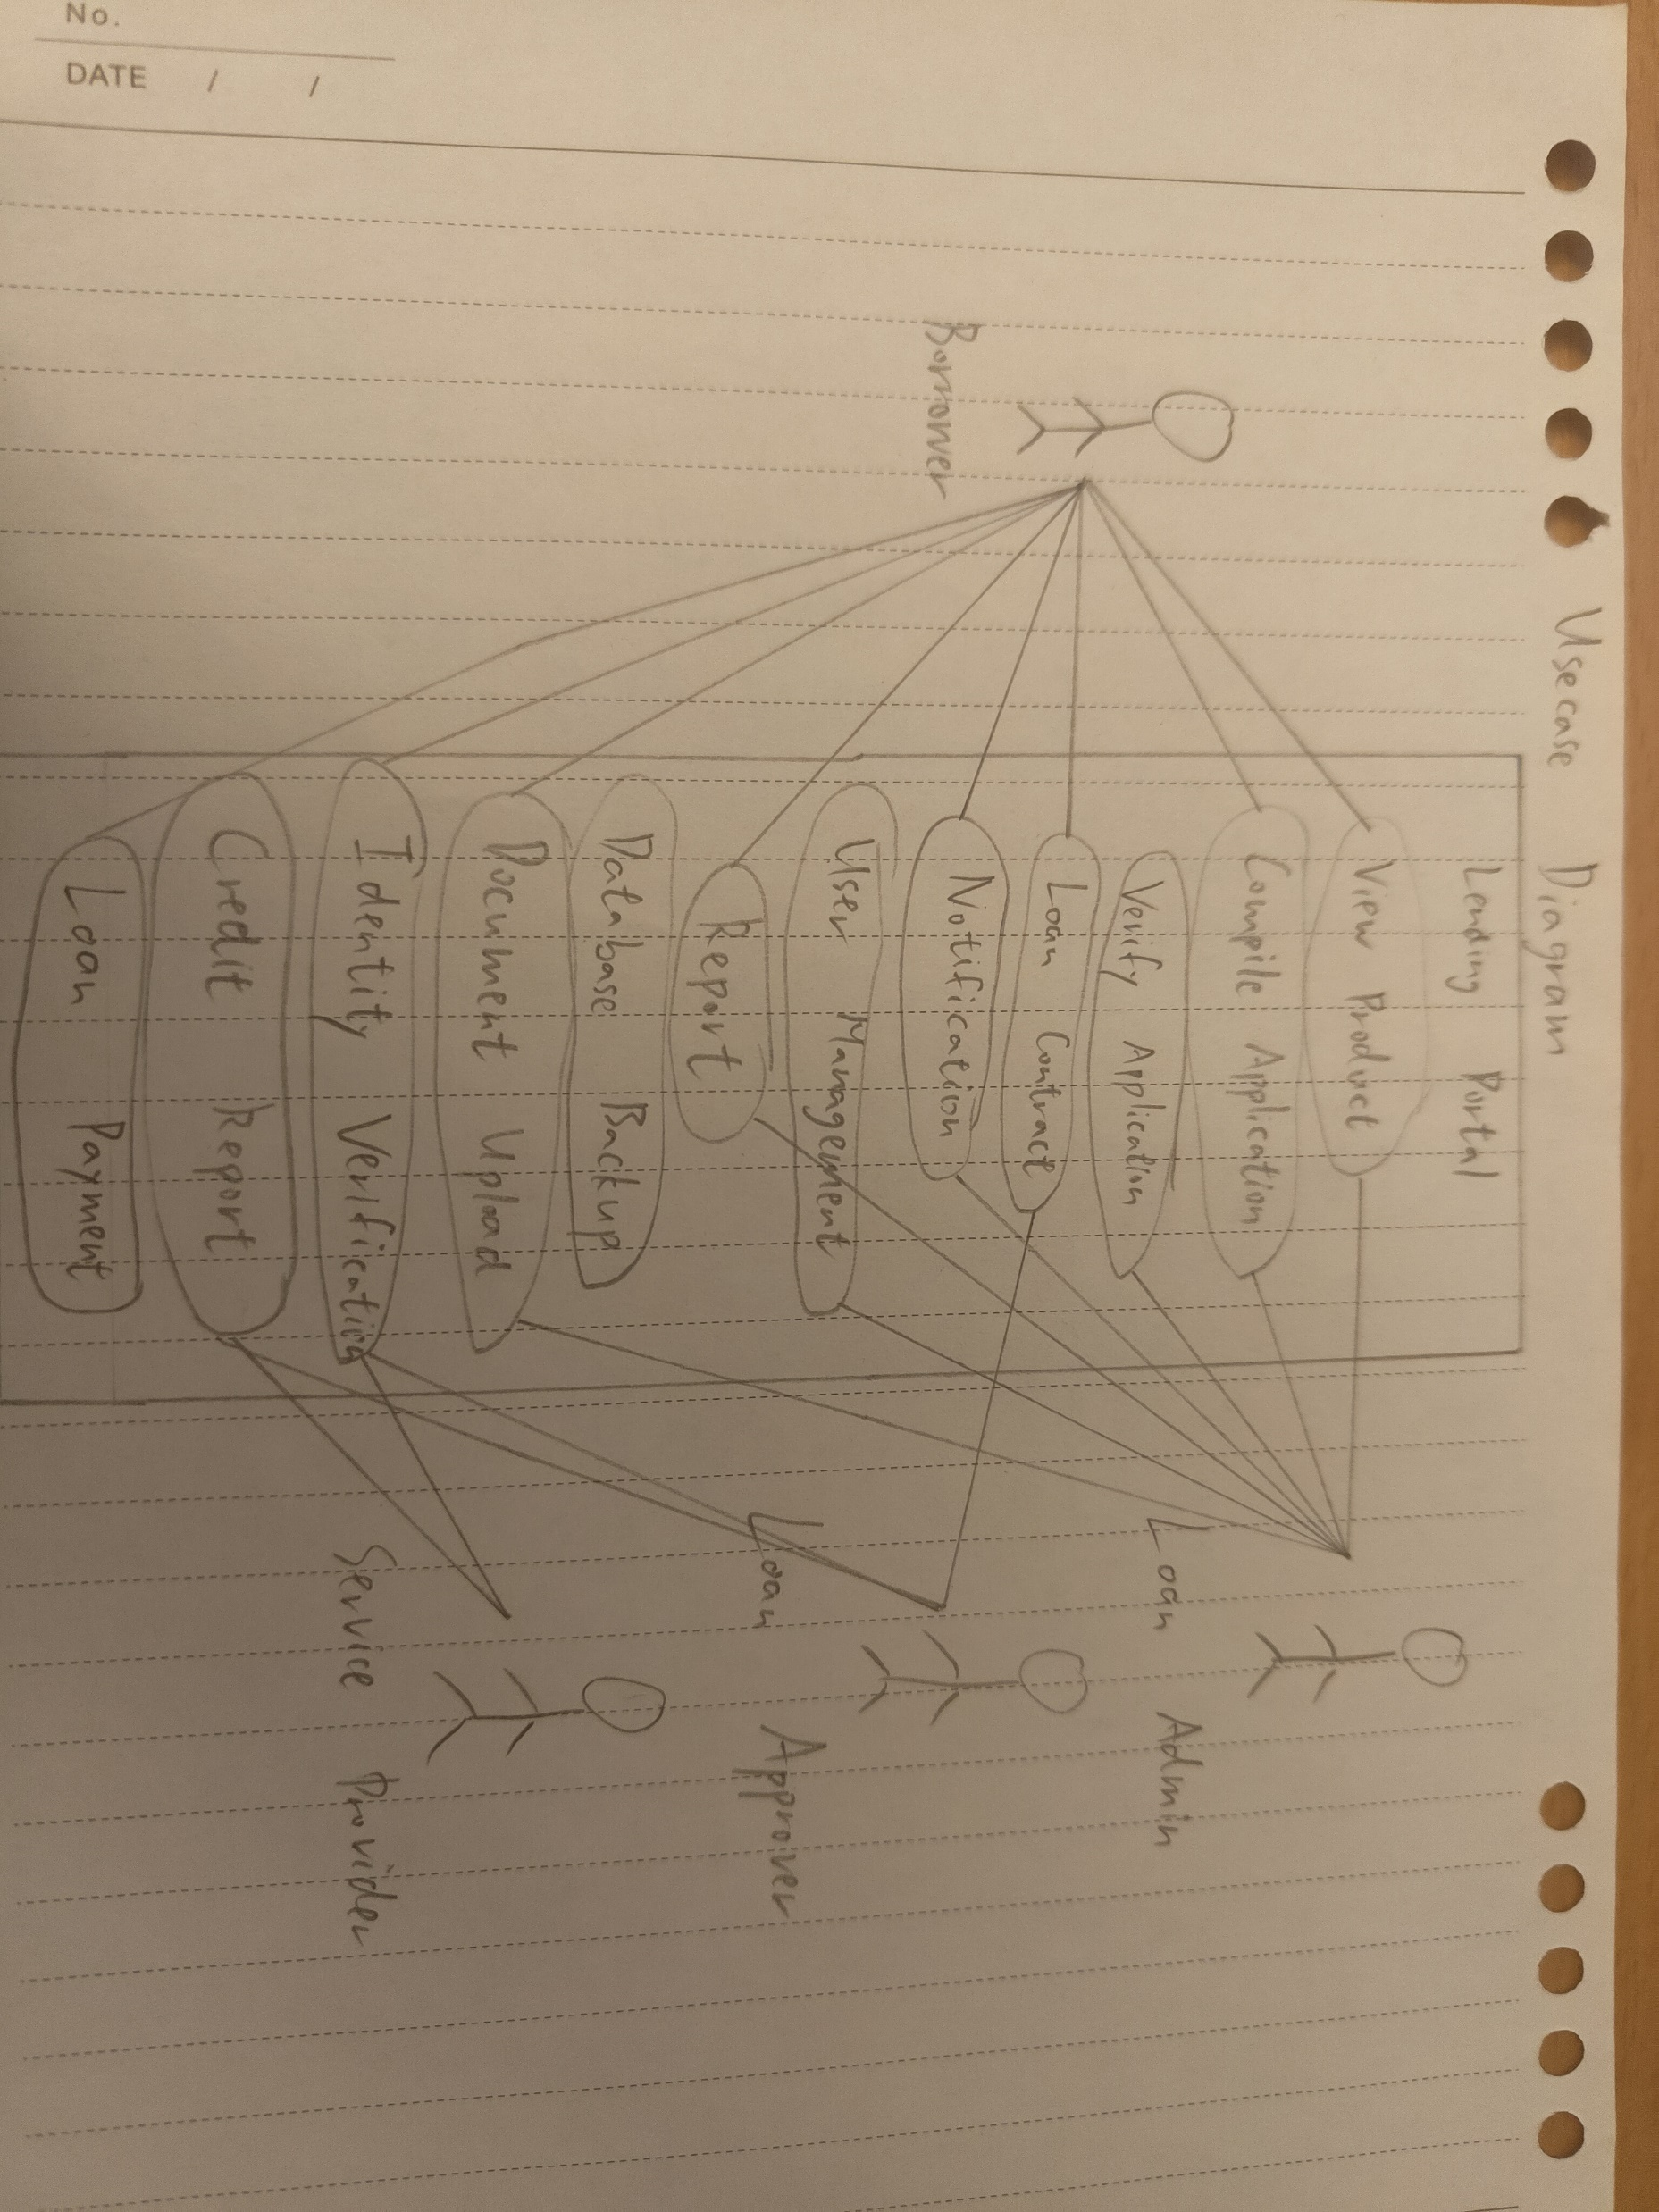 No.
DATE / /
Usecase Diagram
Lending Portal
View Product
Compile Application
Verify Application
Loan Contract
Notification
User Management
Report
Database Backup
Document Upload
Identity Verification
Credit Report
Loan Payment
Borrower
Loan Admin
Loan Approver
Service Provider